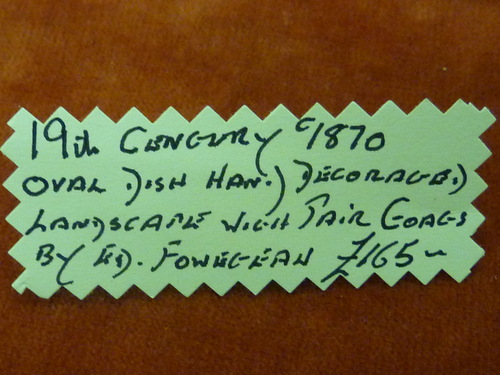 19th Century c1870
Oval Dish Hand Decorated
Landscape with Pair Goats
By Ed. £165-